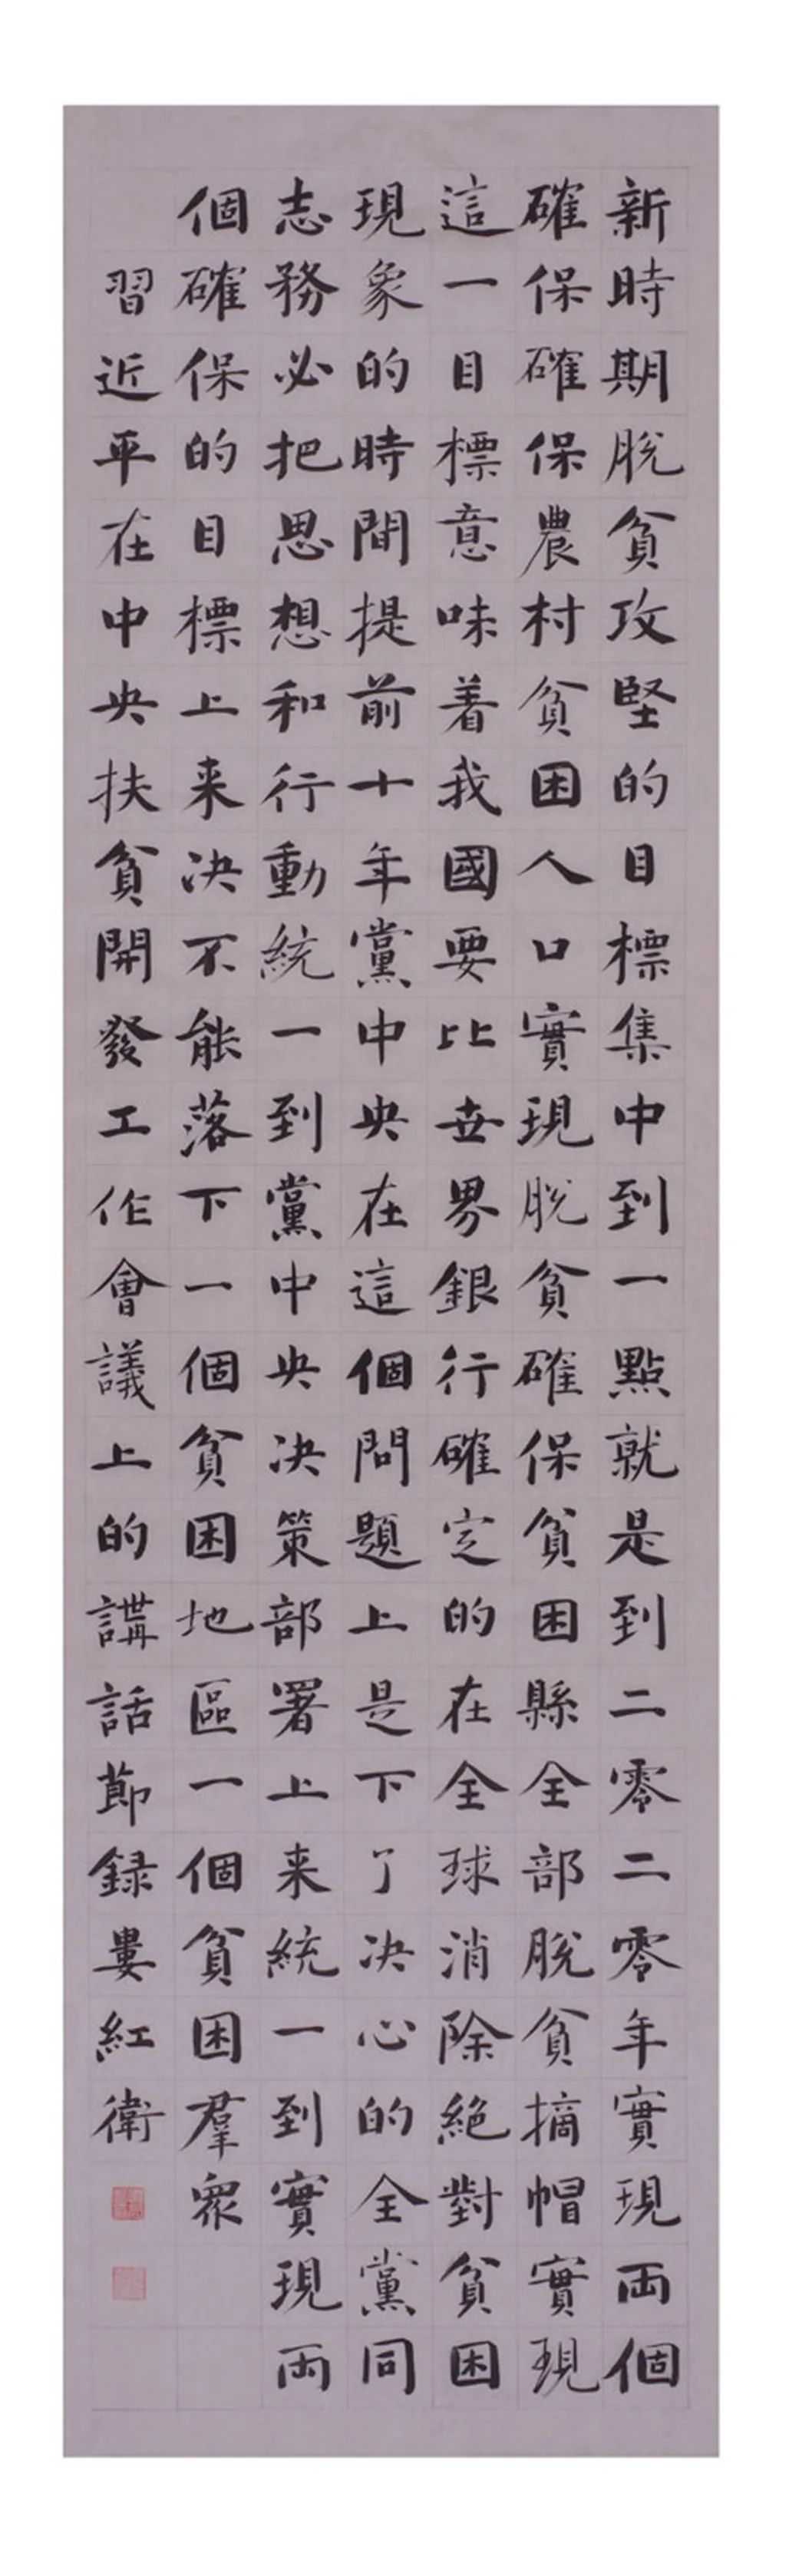 新時期脫貧攻堅的目標集中到一點就是到二零二零年實現兩個
確保確保農村貧困人口實現脫貧確保貧困縣全部脫貧摘帽實現
這一目標意味着我國要比世界銀行確定的在全球消除絕對貧困
現象的時間提前十年黨中央在這個問題上是下了决心的全黨同
志務必把思想和行動統一到黨中央决策部署上来統一到實現兩
個確保的目標上来决不能落下一個貧困地區一個貧困羣衆
習近平在中央扶貧開發工作會議上的講話節録婁紅衛